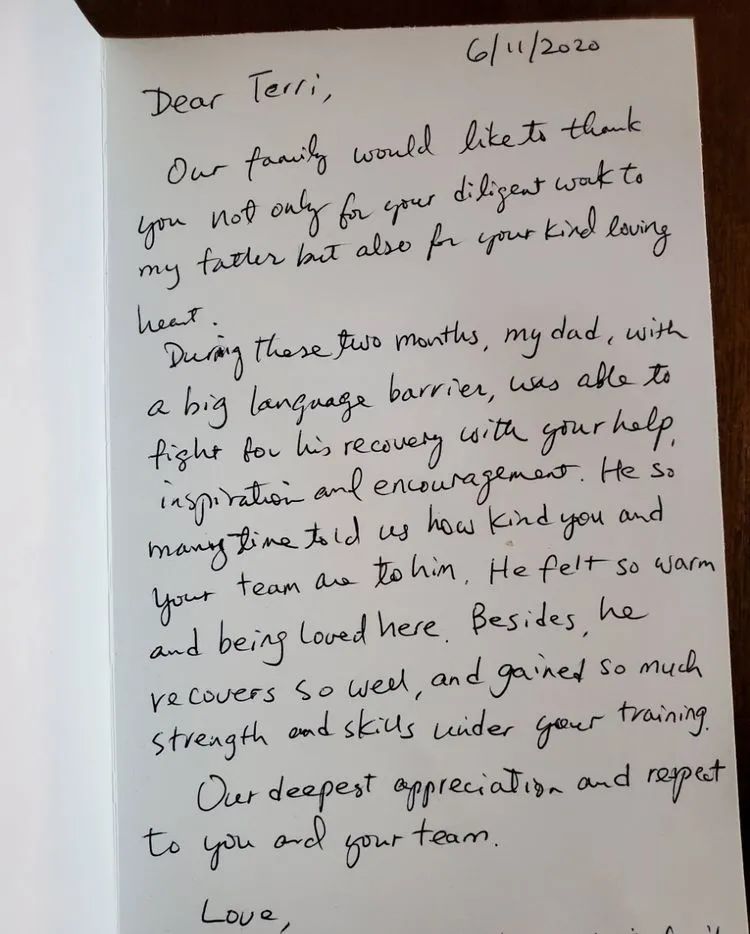 6/11/2020
Dear Terri,
Our family would like to thank
you not only for your diligent work to
my father but also for your kind loving
heart.
During these two months, my dad, with
a big language barrier, was able to
fight for his recovery with your help,
inspiration and encouragement. He so
many time told us how kind you and
your team are to him. He felt so warm
and being loved here. Besides, he
recovers so well, and gained so much
strength and skills under your training.
Our deepest appreciation and respect
to you and your team.
Love,